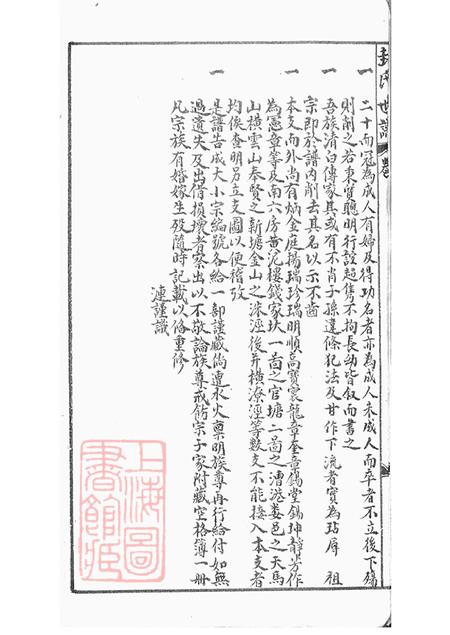 一 二十而冠為成人有婦及得功名者亦為成人未成人而卒者不立後下殤
則削之若秉質聰明行誼超雋不拘長幼皆叙而書之
一 吾族清白傳家其或有不肖子孫違條犯法及甘作下流者實為玷辱 祖
宗即於譜內削去其名以示不齒
一 本支而外尚有炳金庭揚瑞珍瑞明順高寶寰龍章奎章錫堂錫坤靜芳作
為憲章等及南六房黃泥樓錢家圦一啚之官塘二啚之漕港婁邑之天馬
山橫雲山奉賢之新塘金山之洙涇後并橫潦涇等數支不能接入本支者
均俟查明另立支圖以便稽攷
一 是譜告成大小宗編號各給一部謹藏倘遭水火稟明族尊再行給付如無
過遺失及出借損壞者察出以不敬論族尊戒飭宗子家附藏空格簿一冊
凡宗族有婚嫁生歿隨時記載以俻重修
漣謹識
氏世譜 卷
上海圖
書館藏